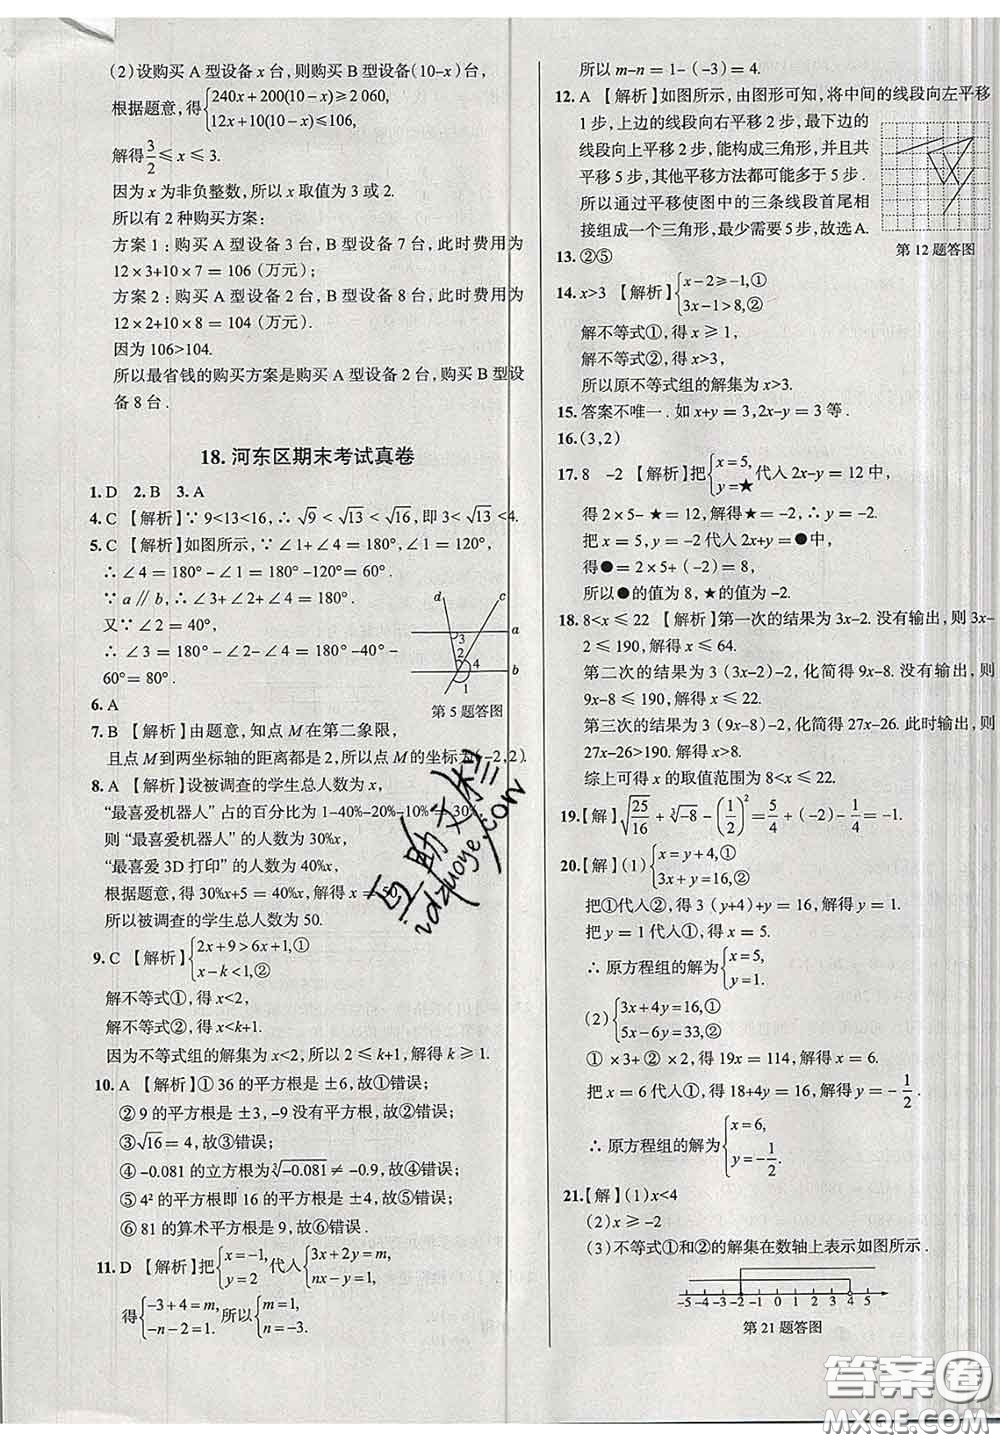 (2)设购买 A 型设备 x 台,则购买 B 型设备(10-x)台,
根据题意,得{240x+200(10-x)≥2 060,
12x+10(10-x)≤106,
解得3/2≤x≤3.
因为 x 为非负整数,所以 x 取值为 3 或 2.
所以有 2 种购买方案:
方案 1:购买 A 型设备 3 台,B 型设备 7 台,此时费用为
12×3+10×7=106(万元);
方案 2:购买 A 型设备 2 台,B 型设备 8 台,此时费用为
12×2+10×8=104(万元).
因为 106>104.
所以最省钱的购买方案是购买 A 型设备 2 台,购买 B 型设
备 8 台.
18. 河东区期末考试真卷
1. D 2. B 3. A
4. C 【解析】∵ 9<13<16,∴ √9<√13<√16,即 3<√13<4.
5. C 【解析】如图所示,∵ ∠1+∠4=180°,∠1=120°,
∴ ∠4=180°-∠1=180°-120°=60°.
∵ a∥b,∴ ∠3+∠2+∠4=180°.
又∵ ∠2=40°,
∴ ∠3=180°-∠2-∠4=180°-40°-
60°=80°.
d c
3 a
2
4 b
1
第 5 题答图
6. A
7. B 【解析】由题意,知点 M 在第二象限,
且点 M 到两坐标轴的距离都是 2,所以点 M 的坐标为(-2,2).
8. A 【解析】设被调查的学生总人数为 x,
“最喜爱机器人”占的百分比为 1-40%-20%-10%=30%,
则“最喜爱机器人”的人数为 30%x,
“最喜爱 3D 打印”的人数为 40%x,
根据题意,得 30%x+5=40%x,解得 x=50,
所以被调查的学生总人数为 50.
9. C 【解析】{2x+9>6x+1,①
x-k<1,②
解不等式①,得 x<2,
解不等式②,得 x<k+1.
因为不等式组的解集为 x<2,所以 2≤k+1,解得 k≥1.
10. A 【解析】① 36 的平方根是 ±6,故①错误;
② 9 的平方根是 ±3,-9 没有平方根,故②错误;
③√16=4,故③错误;
④ -0.081 的立方根为∛-0.081≠-0.9,故④错误;
⑤ 4² 的平方根即 16 的平方根是 ±4,故⑤错误;
⑥ 81 的算术平方根是 9,故⑥错误.
11. D 【解析】把{x=-1,
y=2 代入{3x+2y=m,
nx-y=1,
得{-3+4=m,
-n-2=1. 所以{m=1,
n=-3.
所以 m-n=1-(-3)=4.
12. A 【解析】如图所示,由图形可知,将中间的线段向左平移
1 步,上边的线段向右平移 2 步,最下边的
线段向上平移 2 步,能构成三角形,并且共
平移 5 步,其他平移方法都可能多于 5 步.
所以通过平移使图中的三条线段首尾相
接组成一个三角形,最少需要 5 步,故选 A.
第 12 题答图
13. ②⑤
14. x>3 【解析】{x-2≥-1,①
3x-1>8,②
解不等式①,得 x≥1,
解不等式②,得 x>3,
所以原不等式组的解集为 x>3.
15. 答案不唯一. 如 x+y=3,2x-y=3 等.
16. (3,2)
17. 8 -2 【解析】把{x=5,
y=★ 代入 2x-y=12 中,
得 2×5-★=12,解得★=-2.
把 x=5,y=-2代入 2x+y=●中,
得●=2×5+(-2)=8,
所以●的值为 8,★的值为 -2.
18. 8<x≤22 【解析】第一次的结果为 3x-2. 没有输出,则 3x-
2≤190,解得 x≤64.
第二次的结果为 3(3x-2)-2,化简得 9x-8. 没有输出,则
9x-8≤190,解得 x≤22.
第三次的结果为 3(9x-8)-2,化简得 27x-26. 此时输出,则
27x-26>190. 解得 x>8.
综上可得 x 的取值范围为 8<x≤22.
19.【解】√25/16+∛-8-(1/2)²=5/4+(-2)-1/4=-1.
20.【解】(1){x=y+4,①
3x+y=16,②
把①代入②,得 3(y+4)+y=16,解得 y=1.
把 y=1 代入①,得 x=5.
∴ 原方程组的解为{x=5,
y=1.
(2){3x+4y=16,①
5x-6y=33,②
①×3+②×2,得 19x=114,解得 x=6.
把 x=6代入①,得 18+4y=16,解得 y=-1/2.
∴ 原方程组的解为{x=6,
y=-1/2.
21.【解】(1)x<4
(2)x≥-2
(3)不等式①和②的解集在数轴上表示如图所示.
-5 -4 -3 -2 -1 0 1 2 3 4 5
第 21 题答图
互助文栏
idzuoye.com
答案圈
MXQE.COM